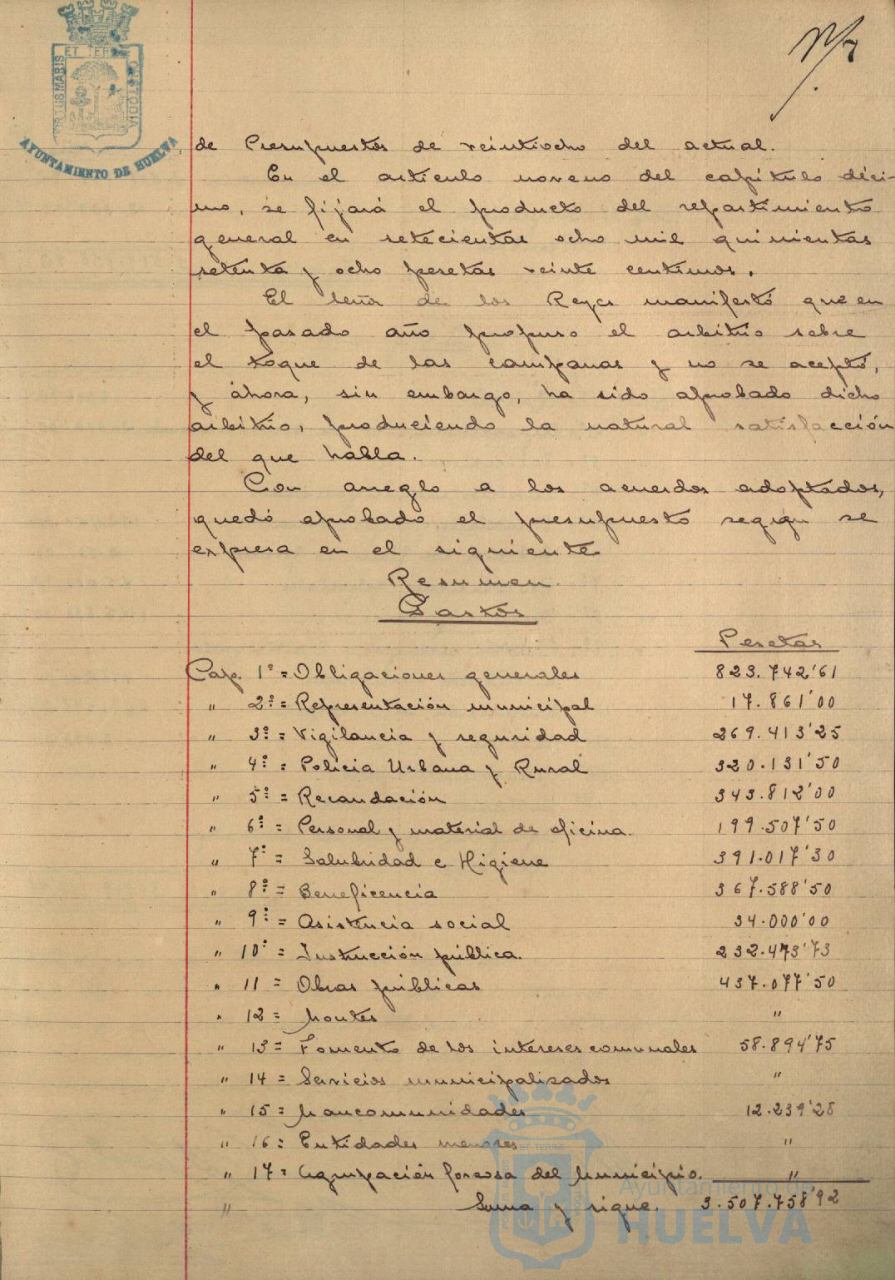 PORTUS MARIS ET TERRÆ CUSTODIA
AYUNTAMIENTO DE HUELVA
de Presupuestos de veintiocho del actual.
En el artículo noveno del capítulo déci-
mo, se fijará el producto del repartimiento
general en setecientas ocho mil quinientas
setenta y ocho pesetas veinte centimos.
El Señor de los Reyes manifestó que en
el pasado año propuso el arbitrio sobre
el toque de las campanas y no se aceptó,
y áhora, sin embargo, ha sido aprobado dicho
arbitrio, produciendo la natural satisfacción
del que habla.
Con arreglo a los acuerdos adoptados,
quedó aprobado el presupuesto segun se
expresa en el siguiente
Resumen
Gastos
Pesetas
Cap. 1º = Obligaciones generales 823.742'61
" 2º = Representación municipal 17.861'00
" 3º = Vigilancia y seguridad 269.413'25
" 4º = Policia Urbana y Rural 320.131'50
" 5º = Recaudación 343.812'00
" 6º = Personal y material de oficina. 199.507'50
" 7º = Salubridad e Higiene 391.017'30
" 8º = Beneficencia 367.588'50
" 9º = Asistencia social 34.000'00
" 10º = Instrucción pública. 232.473'73
" 11 = Obras públicas 437.077'50
" 12 = Montes "
" 13 = Fomento de los intereses comunales 58.894'75
" 14 = Servicios municipalizados "
" 15 = Mancomunidades 12.239'28
" 16 = Entidades menores "
" 17 = Agrupación forzosa del Municipio. "
" Suma y sigue. 3.507.758'92
Ayuntamiento de
HUELVA